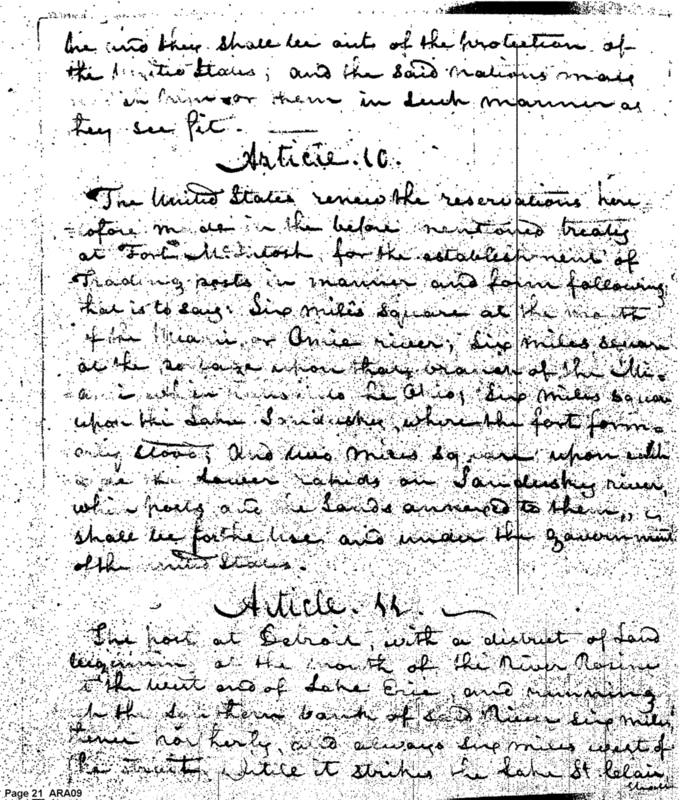 he and they shall be out of the protection of
the United States; and the said nations may
him or them in such manner as
they see fit.
Article. 10.
The United States renew the reservations here
tofore made in the before mentioned treaty
at Fort McIntosh for the establishment of
Trading posts in manner and form following
that is to say: Six miles square at the mouth
of the Miami or Omie river; six miles square
at the portage upon that branch of the Mi-
ami which runs into the Ohio; six miles square
upon the Lake Sandusky where the fort form-
erly stood; And two miles square upon each
side the Lower rapids on Sandusky river,
which posts and the Lands annexed to them,
shall be for the use and under the government
of the United States.
Article. 11.
The post at Detroit, with a district of Land
beginning at the mouth of the River Rosine
at the west end of Lake Erie, and running
up the Southern bank of said River six miles
thence northerly, and always six miles west of
the strait, until it strikes the Lake St. Clair
Page 21 ARA09